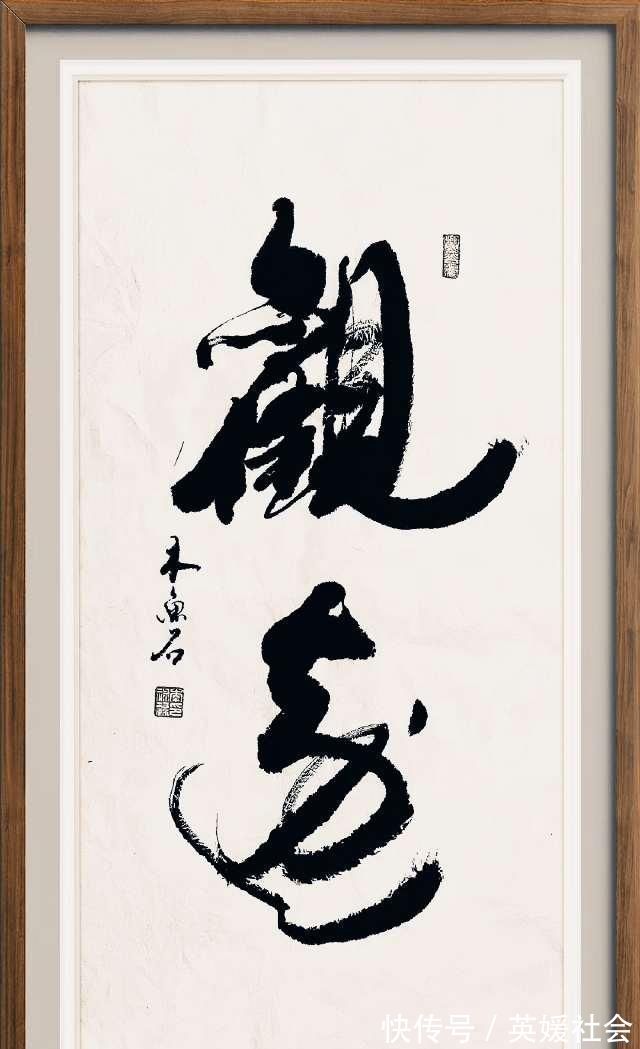 觀遠
木魚石
快传号 / 英媛社会